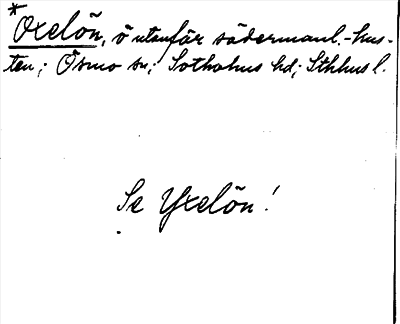 *Oxelön, ö utanför södermanl.-kus-
ten; Ösmo sn; Sotholms hd; Sthlms l.
Se Yxelön!